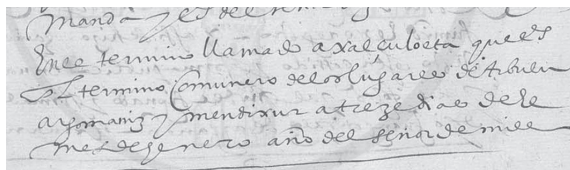 manda y es del
En el termino llamado axalculoeta que es
el termino Comunero de los lugares de Arbulu
ayomaniz y mendixur a treze dias de el
mes de henero año del señor de mill